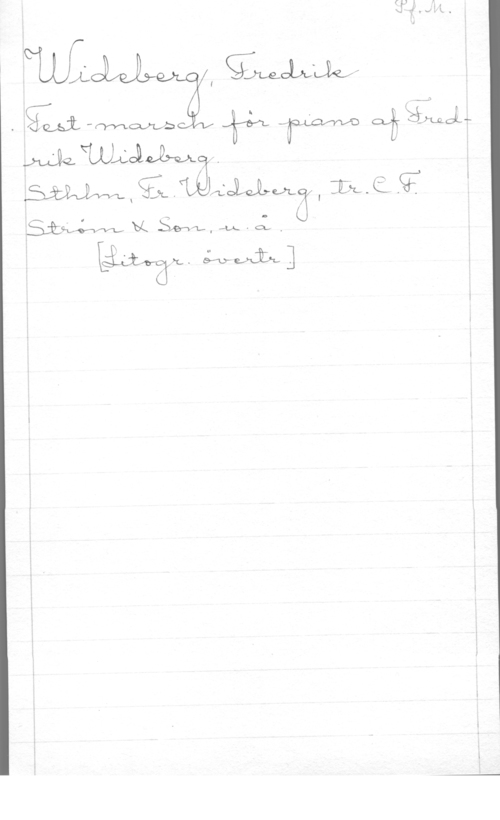 Pf. M.
Wideberg, Fredrik
Fest-marsch för piano af Fred-
rik Wideberg.
Sthlm, Fr. Wideberg, tr. C. F.
Ström & Son, u. å.
[Litogr. övertr.]